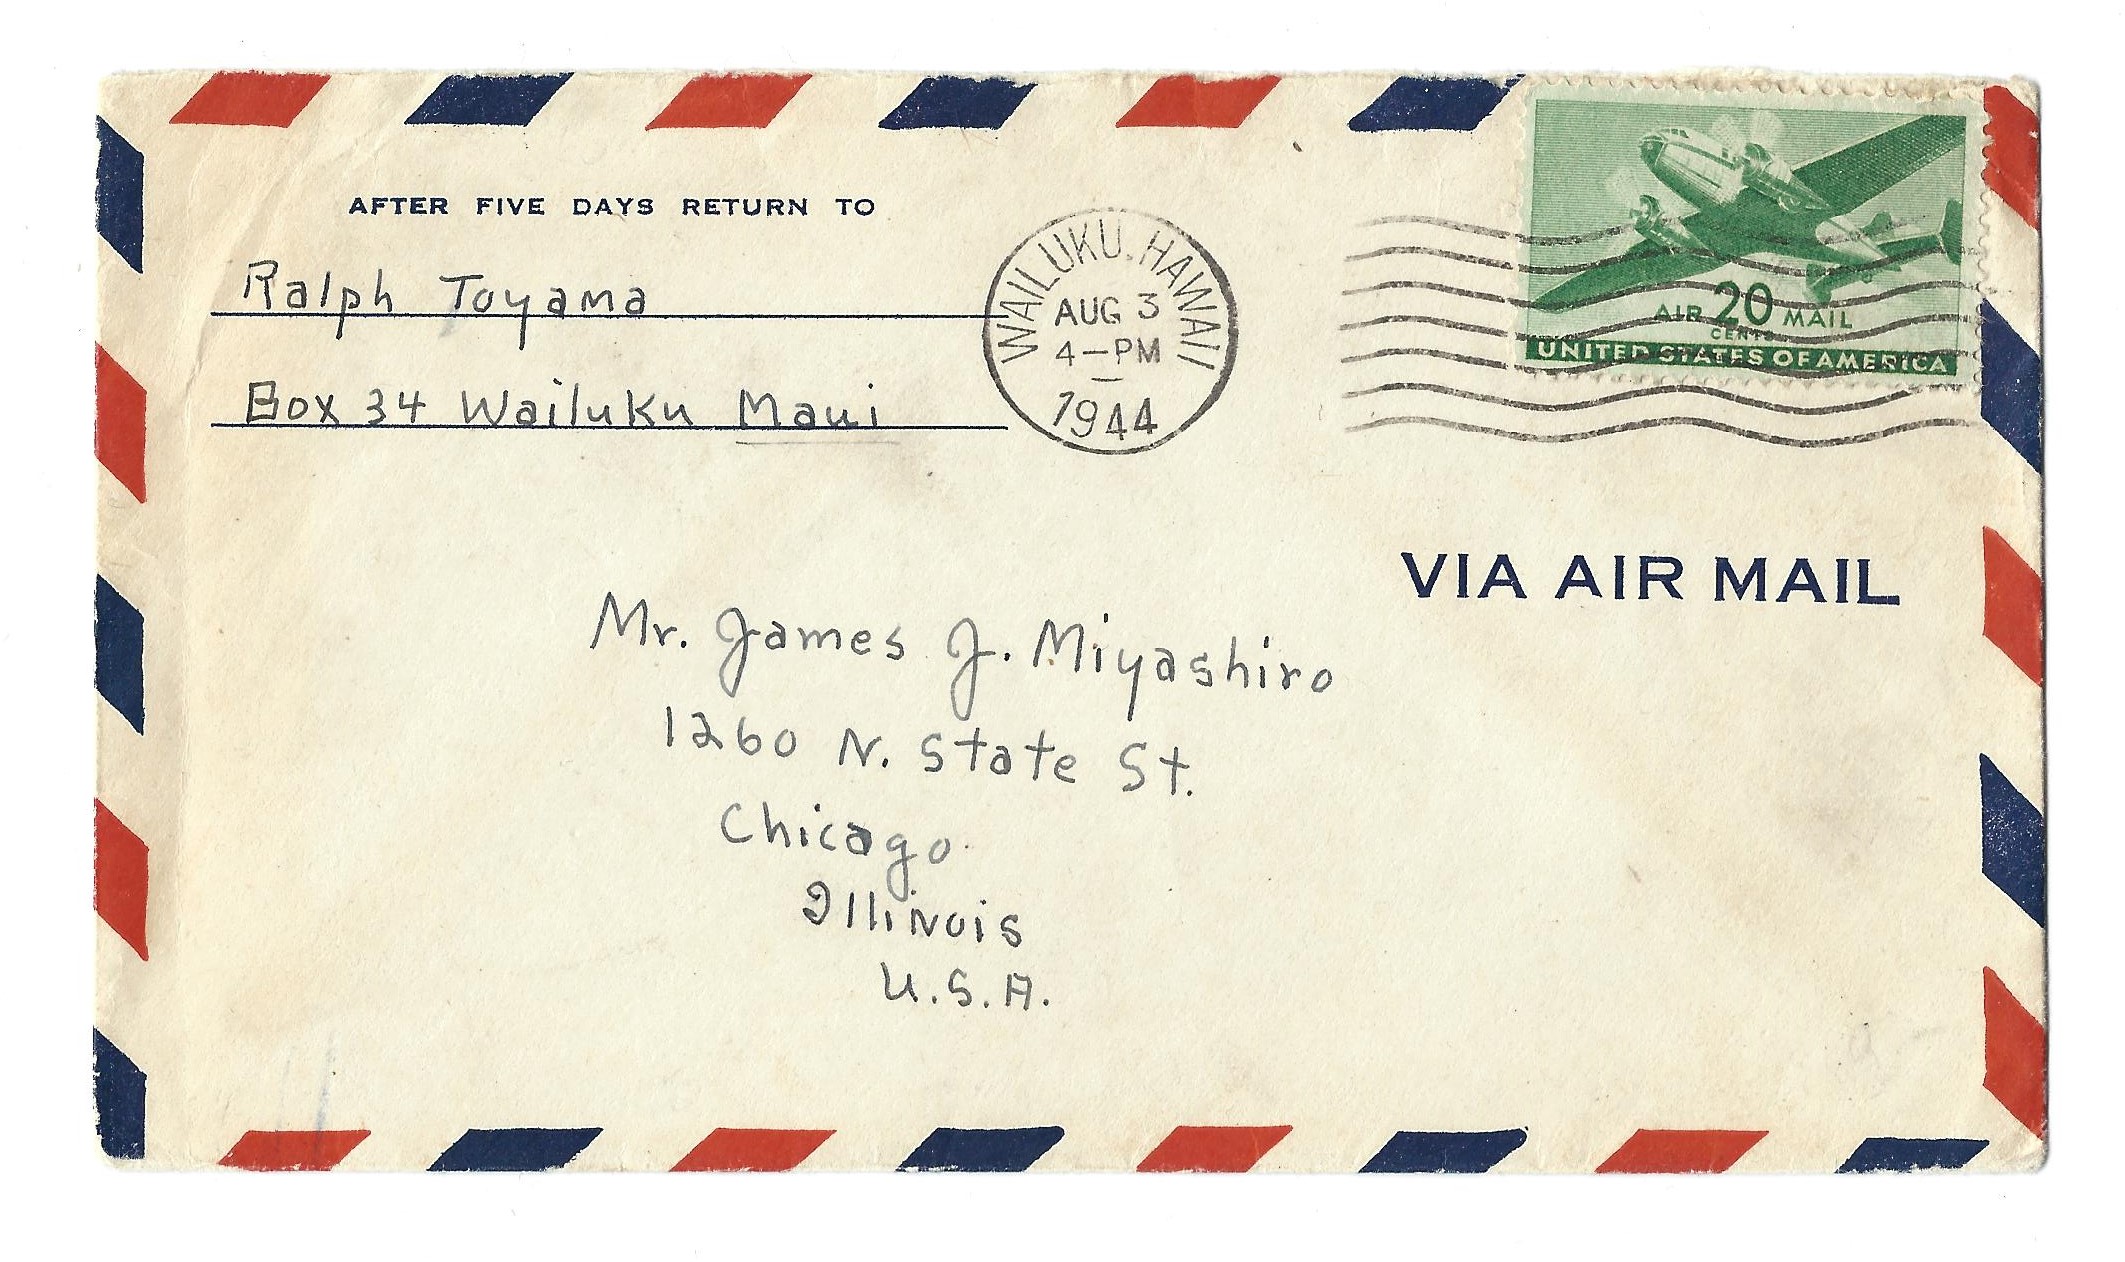 AFTER FIVE DAYS RETURN TO
Ralph Toyama
Box 34 Wailuku Maui
WAILUKU, HAWAII
AUG 3
4-PM
1944
AIR 20 MAIL
CENTS
UNITED STATES OF AMERICA
VIA AIR MAIL
Mr. James J. Miyashiro
1260 N. State St.
Chicago
Illinois
U.S.A.